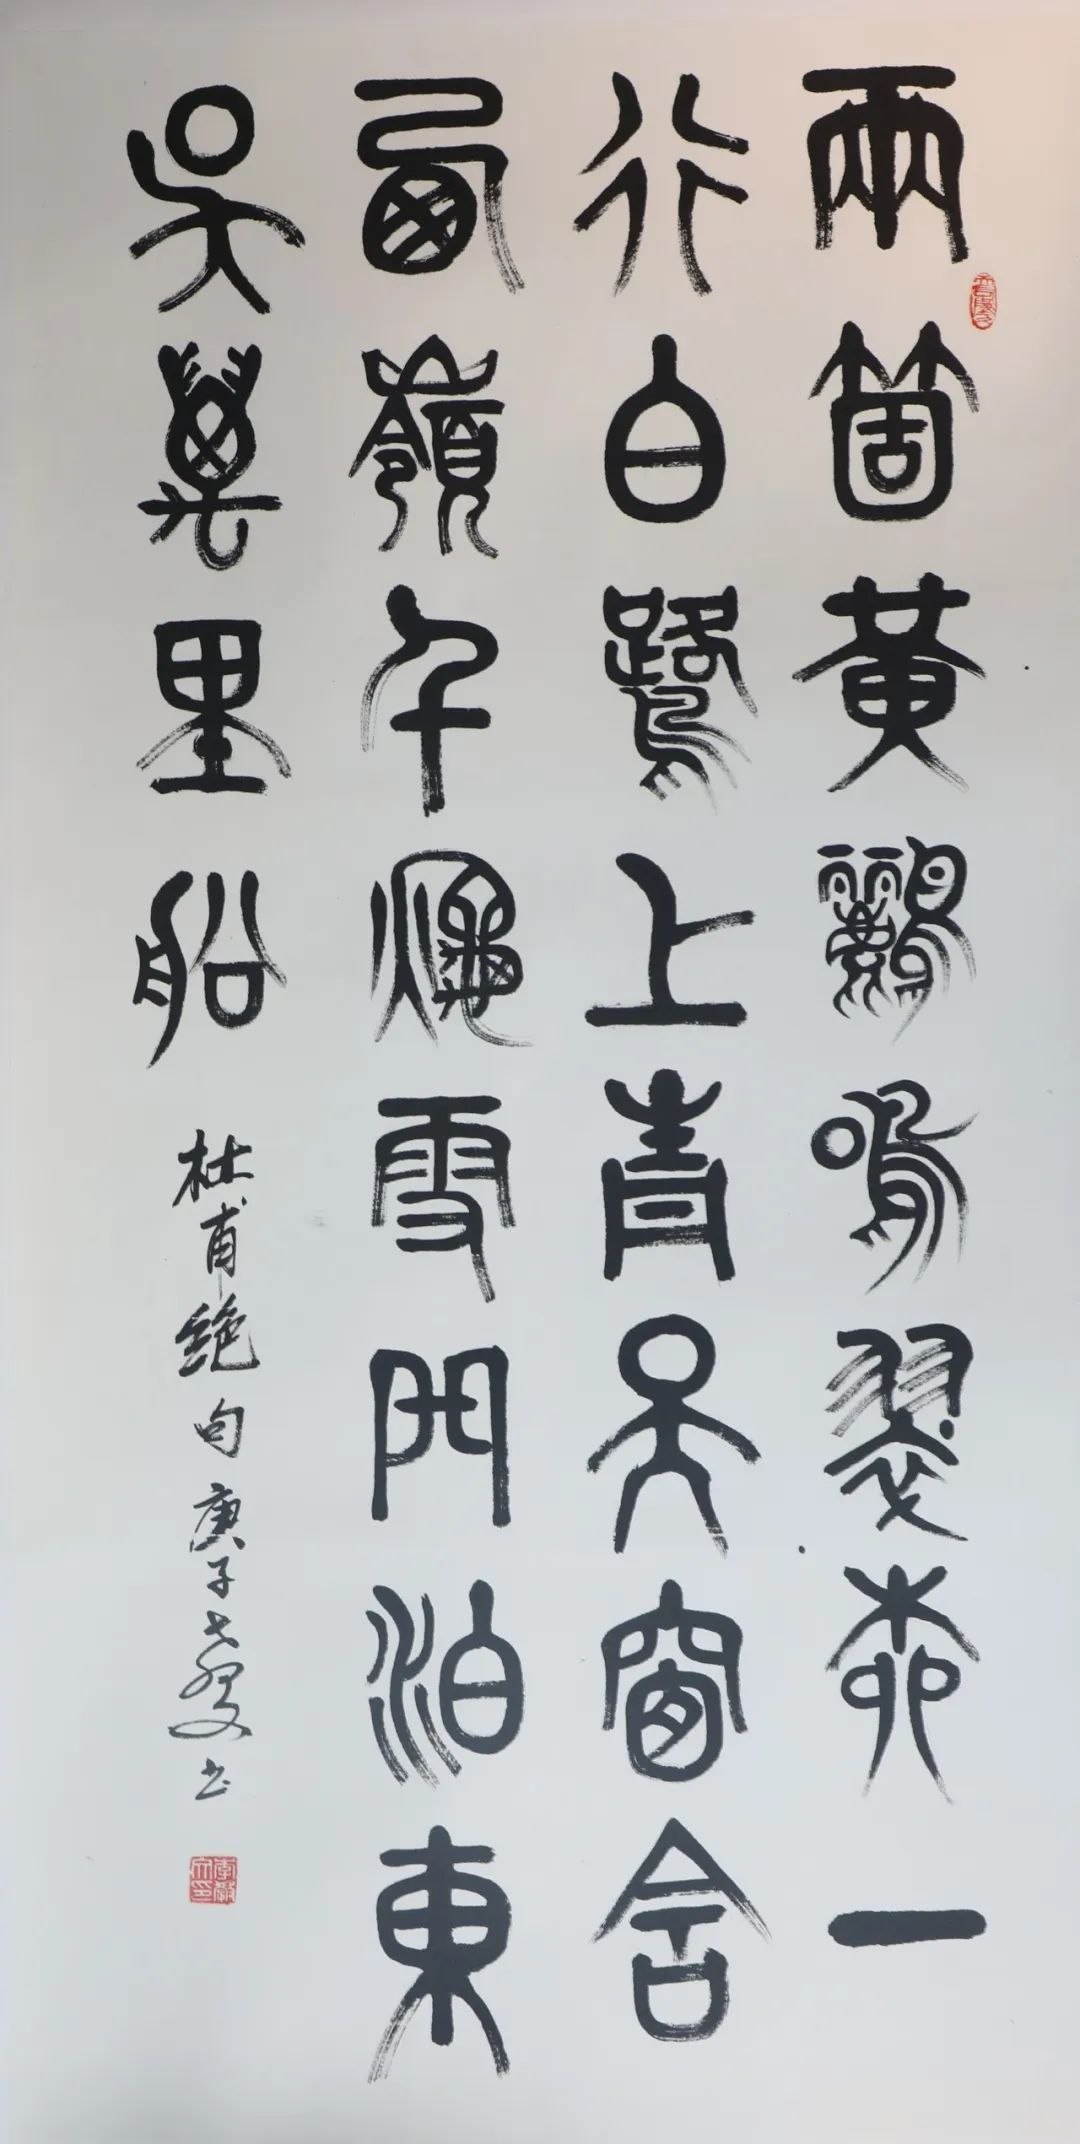 兩箇黃鸝鳴翠柳一
行白鷺上青天窗含
西嶺千秋雪門泊東
吳萬里船
杜甫絕句庚子书